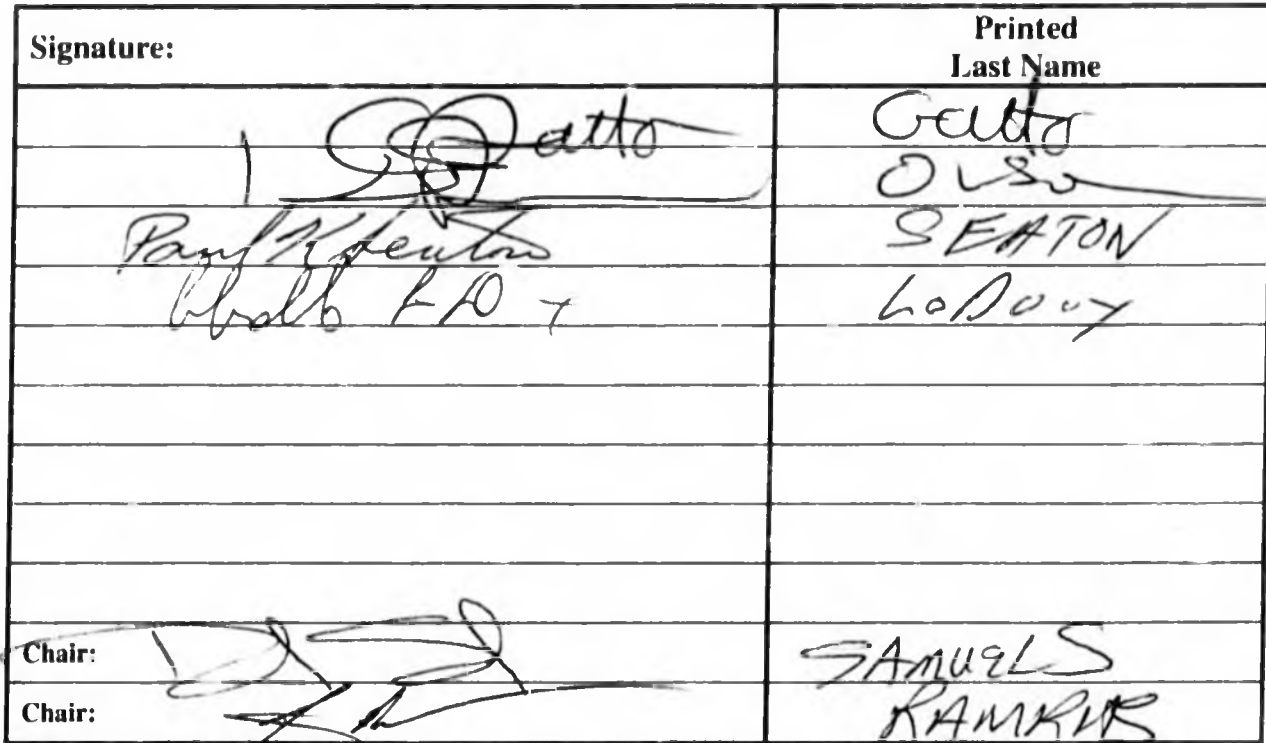 Signature: Printed Last Name
Gatto Gatto
Olson
Paul K Seaton SEATON
LeDoux
Chair: SAMUELS
Chair: RAMRAS